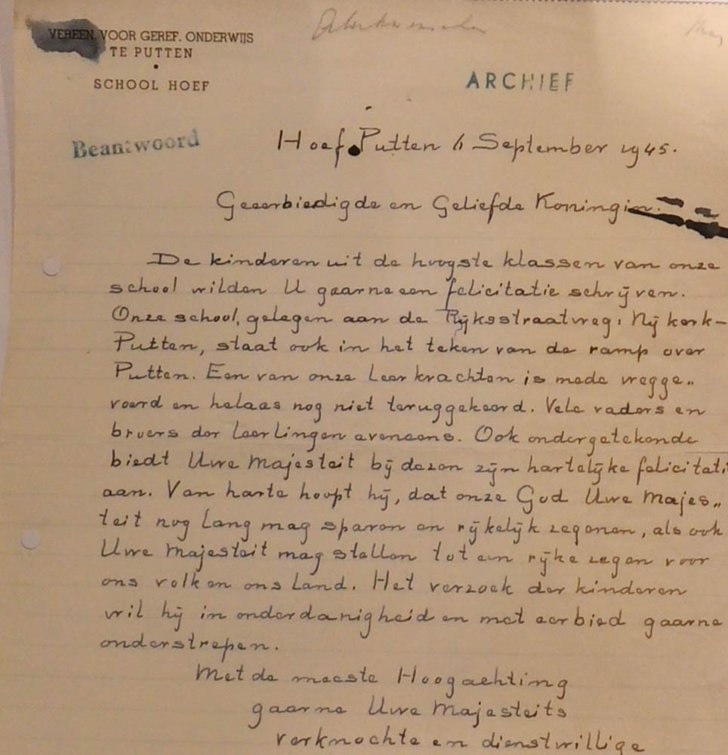 VEREEN. VOOR GEREF. ONDERWIJS
TE PUTTEN
•
SCHOOL HOEF
ARCHIEF
Beantwoord
Hoef-Putten 6 September 1945.
Geëerbiedigde en Geliefde Koningin.
De kinderen uit de hoogste klassen van onze
school wilden U gaarne een felicitatie schrijven.
Onze school, gelegen aan de Rijksstraatweg, Nijkerk-
Putten, staat ook in het teken van de ramp over
Putten. Een van onze leerkrachten is mede wegge„
voerd en helaas nog niet teruggekeerd. Vele vaders en
broers der leerlingen eveneens. Ook ondergetekende
biedt Uwe Majesteit bij dezen zijn hartelijke felicitati
aan. Van harte hoopt hij, dat onze God Uwe Majes„
teit nog lang mag sparen en rijkelijk zegenen, als ook
Uwe Majesteit mag stellen tot een rijke zegen voor
ons volk en ons land. Het verzoek der kinderen
wil hij in onderdanigheid en met eerbied gaarne
onderstrepen.
Met de meeste Hoogachting
gaarne Uwe Majesteits
verknochte en dienstwillige